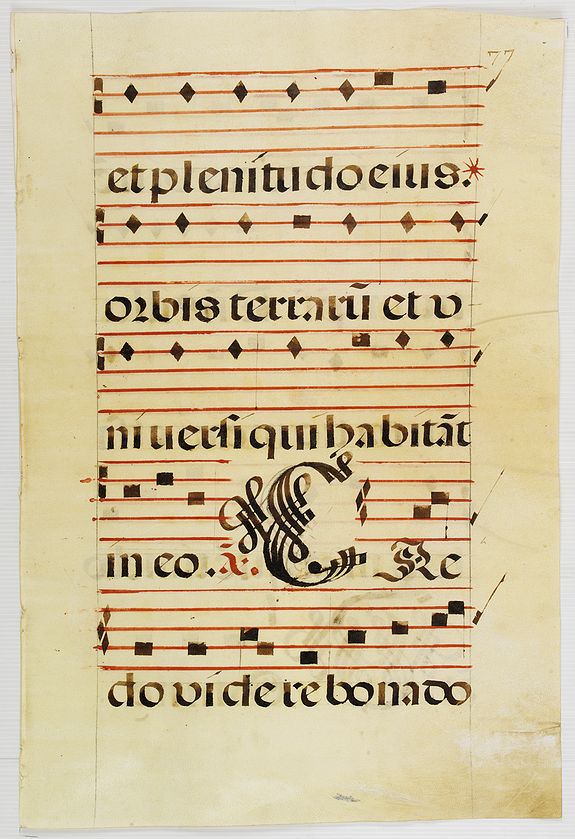 77
et plenitudo eius.*
orbis terrarũ et v
niuersi qui habitãt
in eo. ꝟ. C Re
do videre bona do